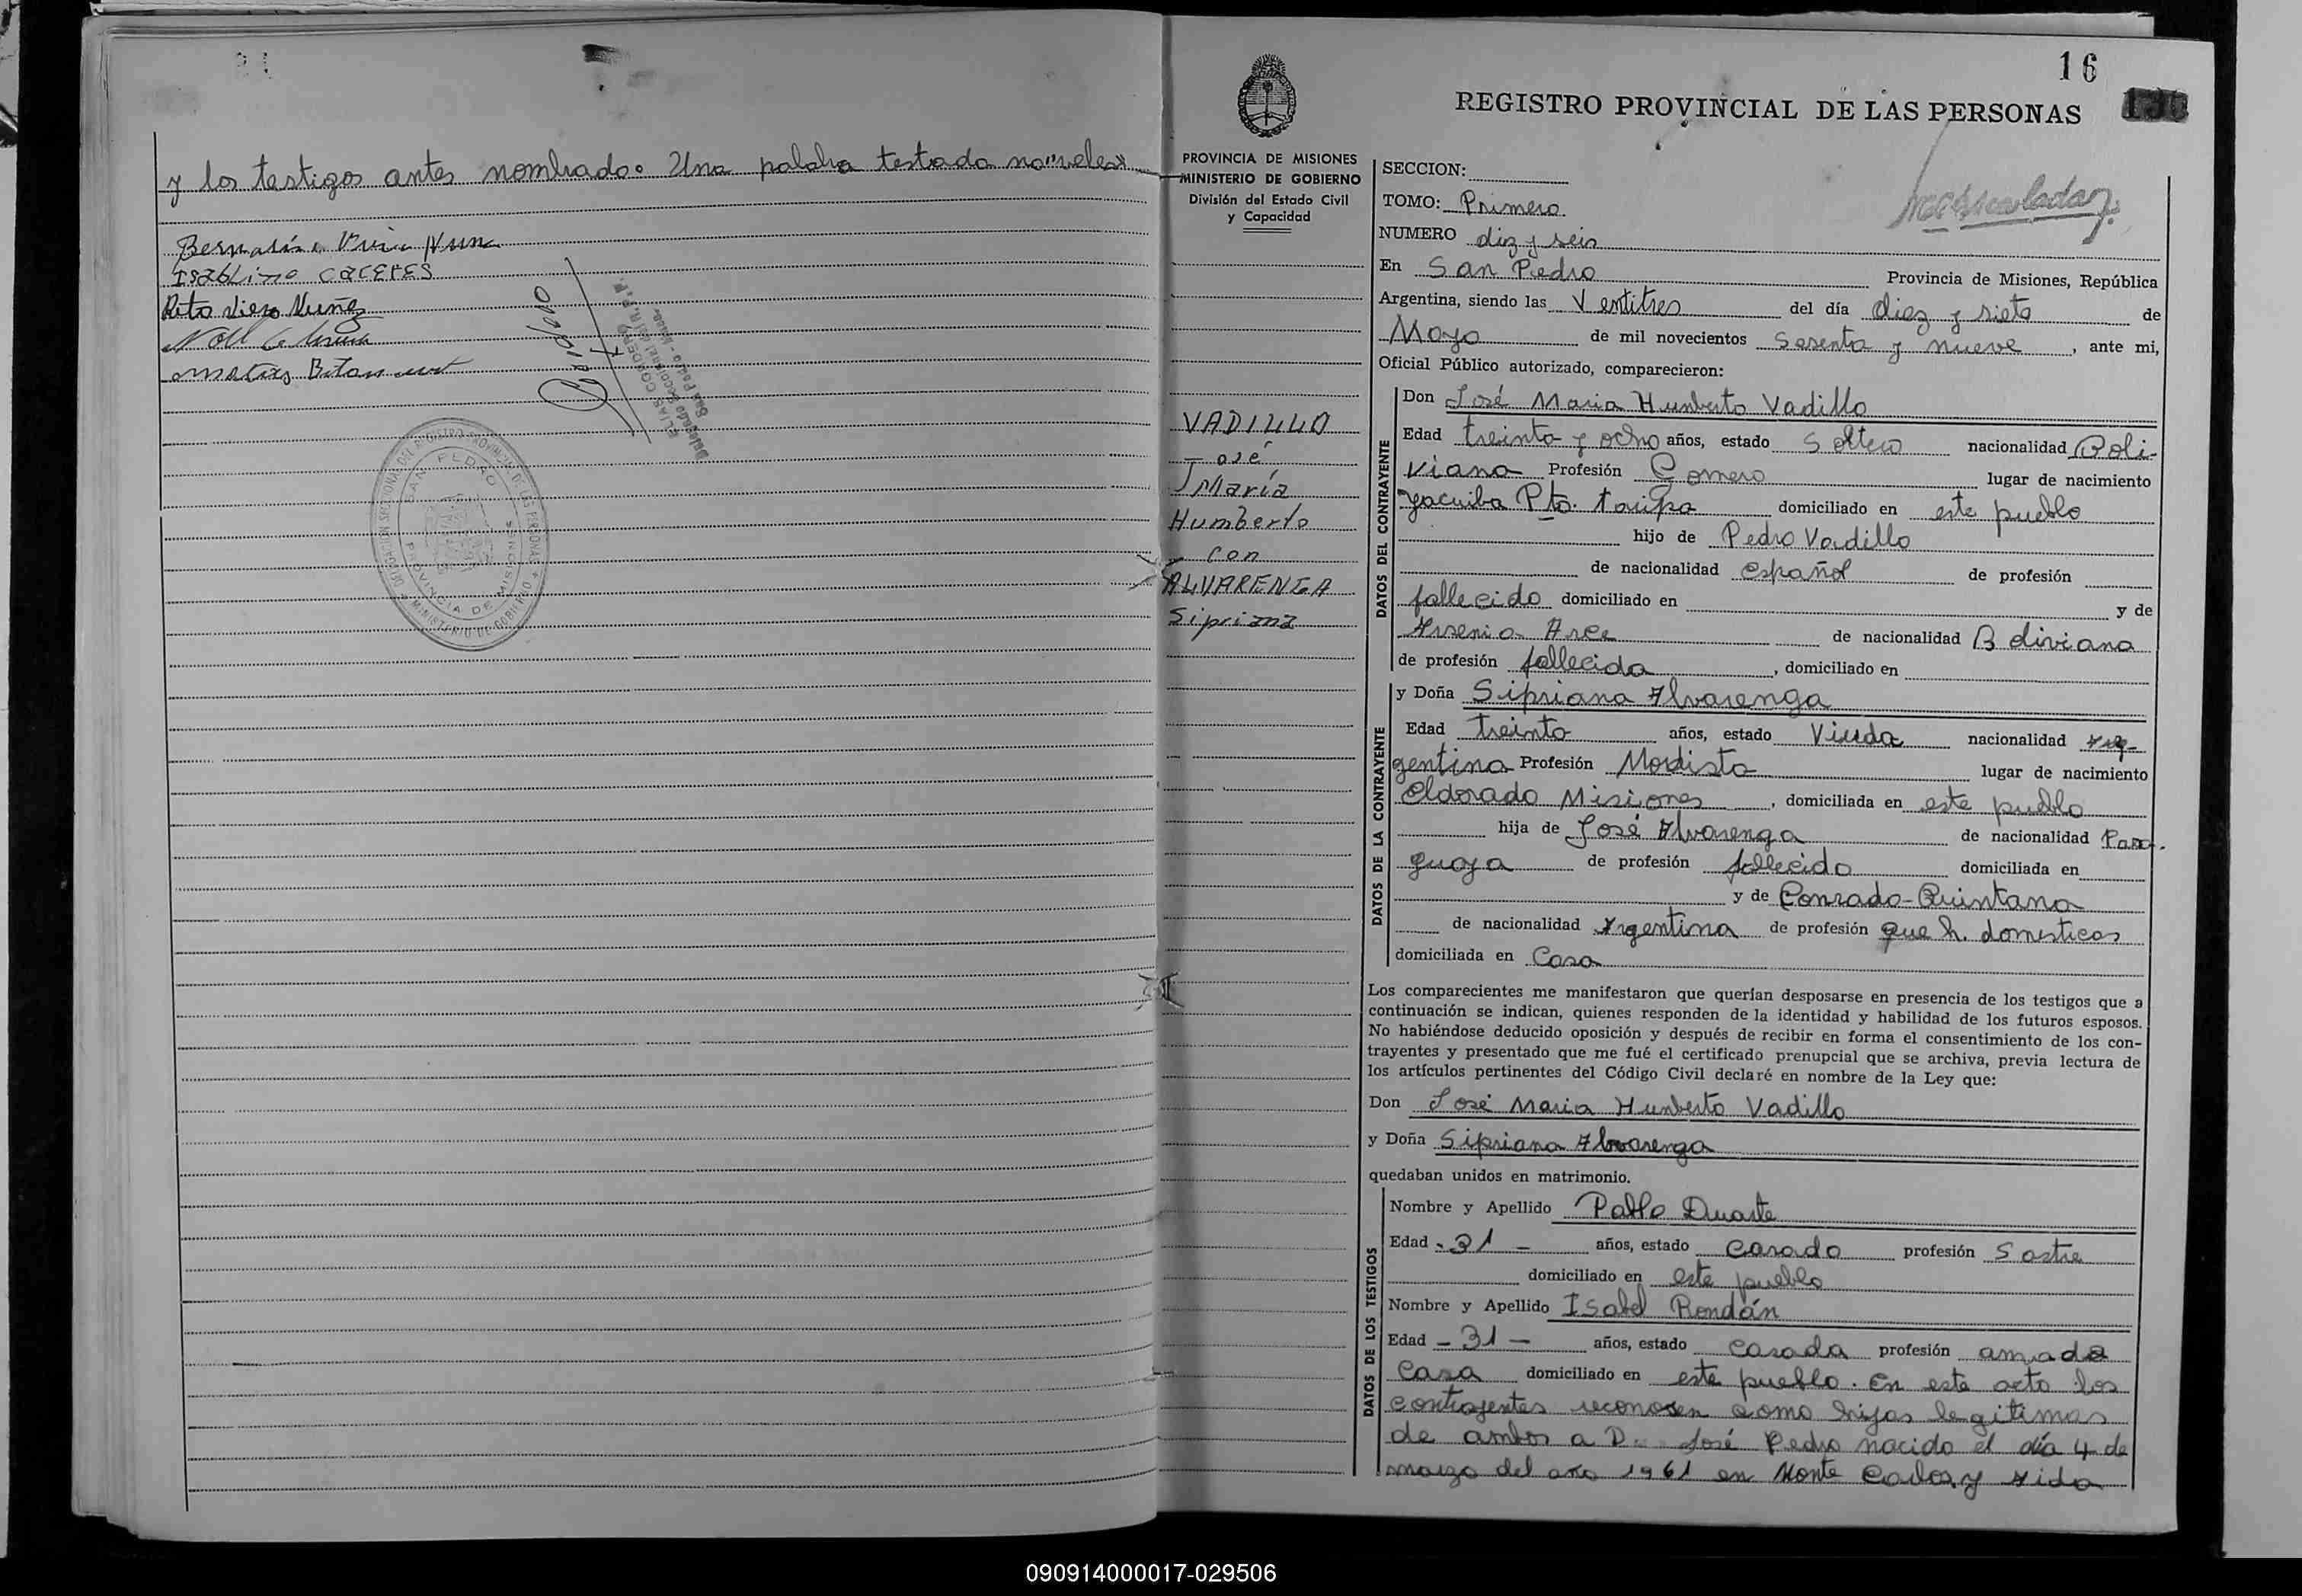 y los testigos antes nombrado. Una palabra testada no "vale"
Isablino caceres
Rita Viera Nuñez
ELIAS CORDERO
Delegado Seccional del R.P.P.
San Pedro - Mnes.
DELEGACION SECCIONAL DEL REGISTRO PROVINCIAL DE LAS PERSONAS
MINISTERIO DE GOBIERNO
SAN PEDRO
PROVINCIA DE MISIONES
16
REGISTRO PROVINCIAL DE LAS PERSONAS
PROVINCIA DE MISIONES
MINISTERIO DE GOBIERNO
División del Estado Civil
y Capacidad
VADILLO
José
María
Humberto
con
ALVARENGA
Sipriana
SECCION:
TOMO: Primero
NUMERO diez y seis
En San Pedro Provincia de Misiones, República
Argentina, siendo las Ventitres del día diez y siete de
Mayo de mil novecientos Sesenta y nueve, ante mi,
Oficial Público autorizado, comparecieron:
DATOS DEL CONTRAYENTE
Don José Maria Humberto Vadillo
Edad treinta y ocho años, estado Soltero nacionalidad Boli-
viana Profesión Gomero lugar de nacimiento
Yacuiba Pto. tarifa domiciliado en este pueblo
hijo de Pedro Vadillo
de nacionalidad español de profesión
fallecido domiciliado en y de
Arsenia Arce de nacionalidad Boliviana
de profesión fallecida, domiciliado en
DATOS DE LA CONTRAYENTE
y Doña Sipriana Alvarenga
Edad treinta años, estado Viuda nacionalidad Arg-
gentina Profesión Modista lugar de nacimiento
Eldorado Misiones, domiciliada en este pueblo
hija de José Alvarenga de nacionalidad Para-
guaya de profesión fallecido domiciliada en
y de Conrada Quintana
de nacionalidad Argentina de profesión que h. domesticos
domiciliada en Casa
Los comparecientes me manifestaron que querían desposarse en presencia de los testigos que a
continuación se indican, quienes responden de la identidad y habilidad de los futuros esposos.
No habiéndose deducido oposición y después de recibir en forma el consentimiento de los con-
trayentes y presentado que me fué el certificado prenupcial que se archiva, previa lectura de
los artículos pertinentes del Código Civil declaré en nombre de la Ley que:
Don José Maria Humberto Vadillo
y Doña Sipriana Alvarenga
quedaban unidos en matrimonio.
DATOS DE LOS TESTIGOS
Nombre y Apellido Pablo Duarte
Edad - 31 - años, estado casado profesión Sastre
domiciliado en este pueblo
Nombre y Apellido Isabel Rondán
Edad - 31 - años, estado casada profesión ama de
casa domiciliado en este pueblo. En este acto los
contrayentes reconosen como hijos legitimos
de ambos a D. José Pedro nacido el día 4 de
marzo del año 1961 en Monte Carlo, y Aida
090914000017-029506